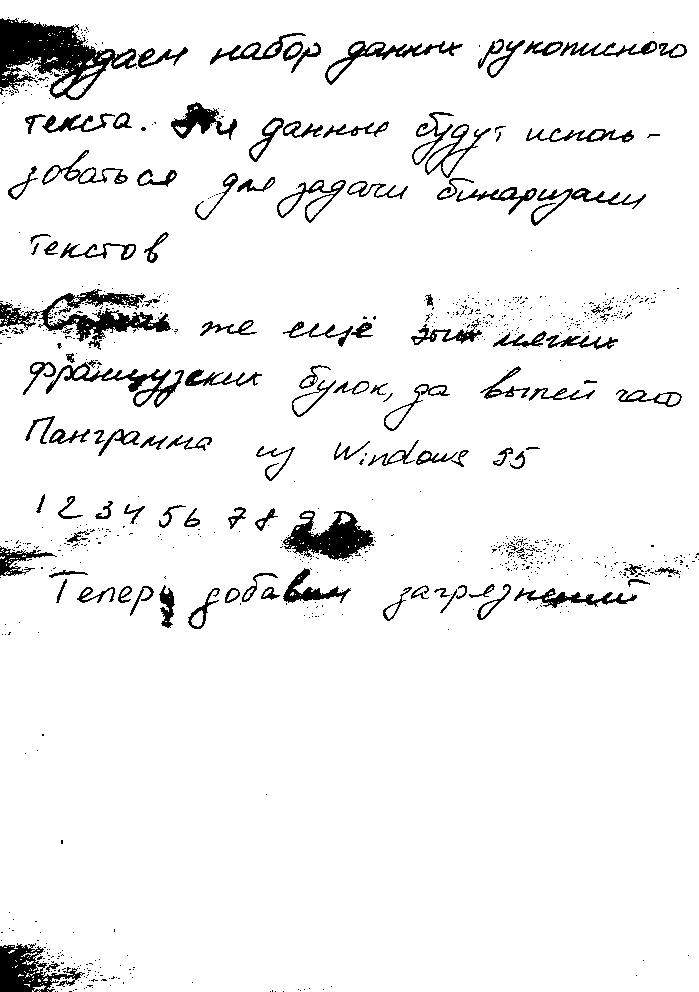 Создаем набор данных рукописного
текста. Эти данные будут исполь-
зоваться для задачи бинаризации
текстов
же ещё этих мягких
французских булок, да выпей чаю
Панграмма из Windows 95
1 2 3 4 5 6 7 8 9 0
Теперь добавим загрязнений